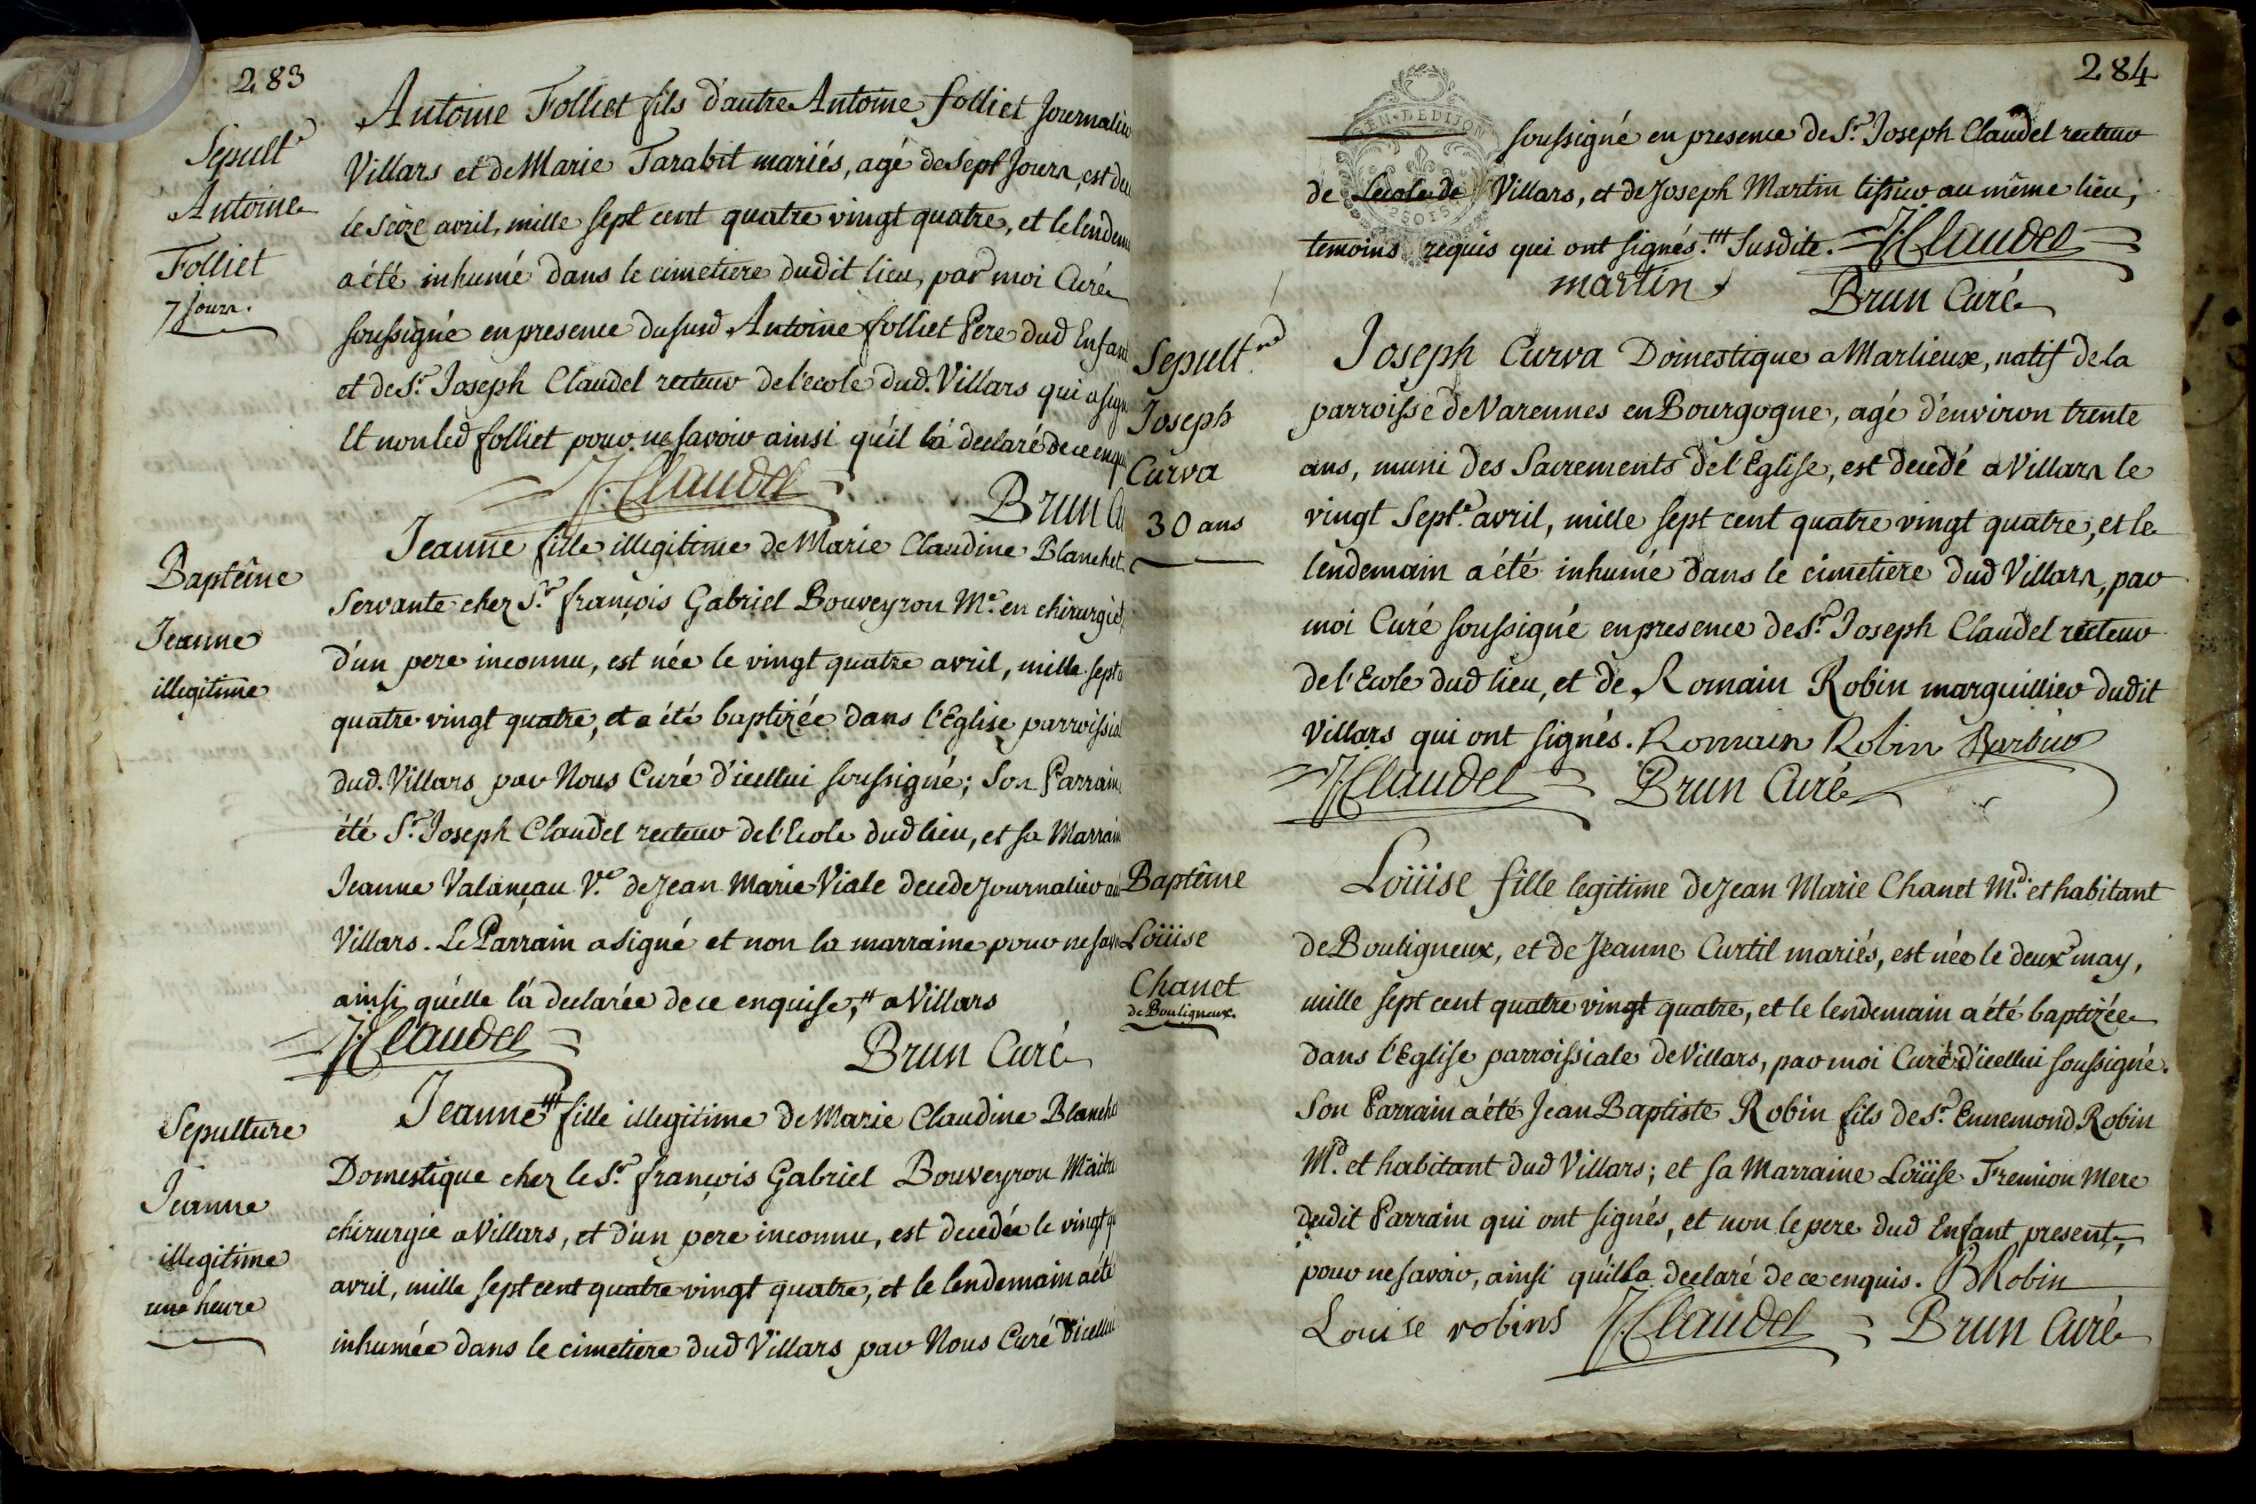 283
Sepult.re
Antoine
Folliet
7 jours.
Antoine Folliet fils d'autre Antoine folliet Journalier
Villars et de Marie Tarabit mariés, agé de sept Jours, est
le seize avril, mille sept cent quatre vingt quatre, et le
a été inhumé dans le cimetiere dudit lieu, par moi Curé
soussigné en presence dusud Antoine folliet Pere dud Enfant
et de Sr. Joseph Claudel recteur de l'ecole dud. Villars qui a
Et non led folliet pour ne savoir ainsi qu'il la declaré de ce
J. Claudel
Brun
Baptême
Jeanne
illegitime
Jeanne fille illegitime de Marie Claudine Blanchet
Servante chez Sr. françois Gabriel Bouveyron Me. en chirurgie
d'un pere inconnu, est née le vingt quatre avril, mille sept
quatre vingt quatre, et a été baptizée dans l'Eglise
dud. Villars par Nous Curé d'icellui soussigné; Son Parrain
été Sr. Joseph Claudel recteur de l'Ecole dud lieu, et sa
Jeanne Valançau Ve. de Jean Marie Viale decede Journalier
Villars. Le Parrain a signé et non la marraine pour ne
ainsi qu'elle l'a declarée de ce enquise, tt a Villars
J. Claudel
Brun Curé
Sepulture
Jeanne
illegitime
une heure
Jeanne ttt fille illegitime de Marie Claudine
Domestique chez le Sr. françois Gabriel Bouveyron
chirurgie a Villars, et d'un pere inconnu, est decedée le vingt
avril, mille sept cent quatre vingt quatre, et le lendemain a été
inhumée dans le cimetiere dud Villars par Nous Curé d'icellui
284
soussigné en presence de Sr. Joseph Claudel recteur
de Lecole de Villars, et de Joseph Martin tissier au même lieu,
temoins requis qui ont signés. ttt Susdite. J. Claudel
martin
Brun Curé
Sepult.re
Joseph
Curva
30 ans
Joseph Curva Domestique a Marlieux, natif de la
parroisse de Varennes en Bourgogne, agé d'environ trente
ans, muni des Sacrements de l'Eglise, est decedé a Villars le
vingt Sept.e avril, mille sept cent quatre vingt quatre, et le
lendemain a été inhumé dans le cimetiere dud Villars, par
moi Curé soussigné en presence de Sr. Joseph Claudel recteur
de l'Ecole dud lieu, et de Romain Robin marguillier dudit
Villars qui ont signés. Romain Robin
J. Claudel Brun Curé
Baptême
Loüise
Chanet
de Bouligneux.
Loüise fille legitime de Jean Marie Chanet Md. et habitant
de Bouligneux, et de Jeanne Curtil mariés, est née le deux may,
mille sept cent quatre vingt quatre, et le lendemain a été baptizée
dans l'Eglise parroissiale de Villars, par moi Curé d'icellui soussigné.
Son Parrain a été Jean Baptiste Robin fils de Sr. Ennemond Robin
Md. et habitant dud Villars; et sa Marraine Loüise Fremion Mere
dudit Parrain qui ont signés, et non le pere dud Enfant present,
pour ne savoir, ainsi qu'il la declaré de ce enquis. B Robin
Louise robins J. Claudel Brun Curé